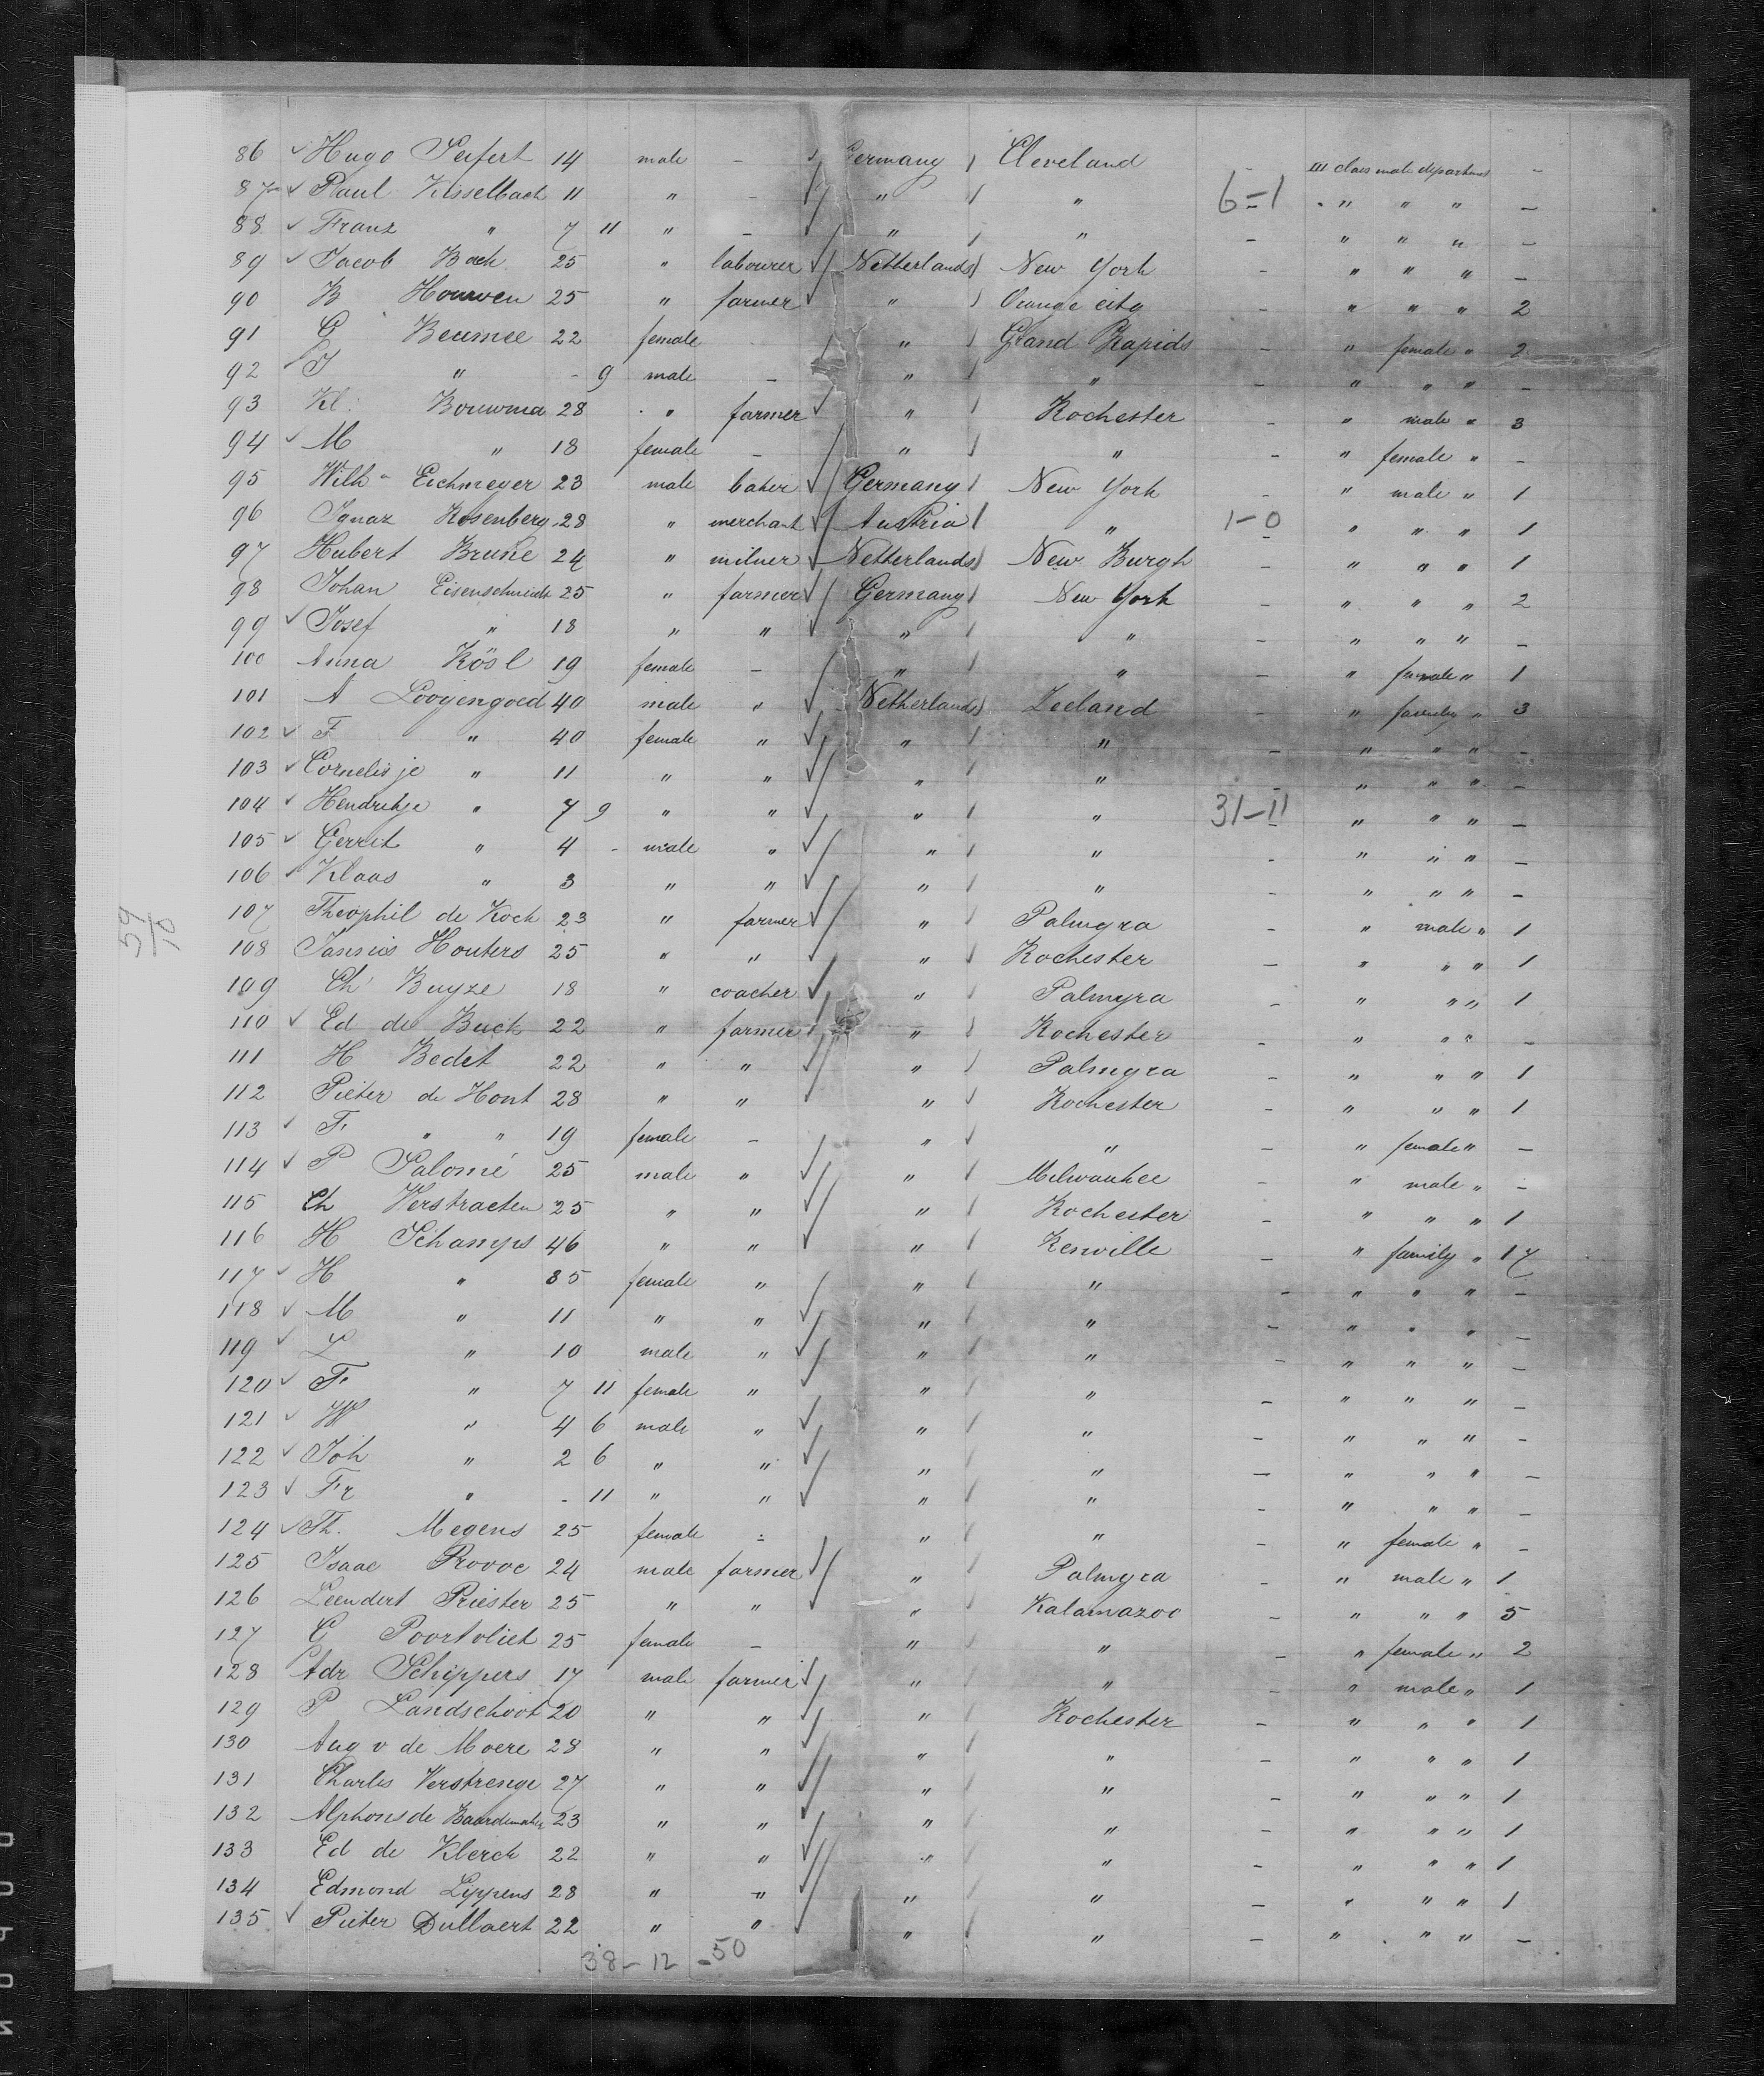 86 ✓ Hugo Seifert 14 male – ✓ Germany / Cleveland – III class male department –
87 ✓ Paul Kisselbach 11 " – " " 6-1 " " " –
88 ✓ Franz " 7 11 " – " " – " " " –
89 ✓ Jacob Bach 25 " labourer ✓ Netherlands New York – " " " –
90 B Houwen 25 " farmer ✓ " Orange city – " " " 2
91 G Beumee 22 female - " Grand Rapids – " female " 2
92 J " - 9 male – " " – " " " –
93 Kl. Bouwma 28 " farmer ✓ " Rochester – " male " 3
94 ✓ M " 18 female – " " – " female " –
95 Wilh Eichmeyer 23 male baker ✓ Germany New York – " male " 1
96 Ignaz Rosenberg 28 " merchant ✓ Austria " 1-0 " " " 1
97 Hubert Brune 24 " milner ✓ Netherlands New Burgh – " " " 1
98 Johan Eisenschmidt 25 " farmer ✓ Germany New York – " " " 2
99 ✓ Josef " 18 " " ✓ " " – " " " –
100 Anna Kösl 19 female – " " – " female " 1
101 A Looyengoed 40 male " ✓ Netherlands Zeeland – " family " 3
102 ✓ F. " 40 female " ✓ " " – " " " –
103 ✓ Cornelisje " 11 " " ✓ " " – " " " –
104 ✓ Hendrikje " 7 9 " " ✓ " " 31-11 " " " –
105 ✓ Gerrit " 4 - male " ✓ " " – " " " –
106 ✓ Klaas " 3 " " ✓ " " – " " " –
107 Theophil de Koch 23 " farmer ✓ " Palmyra – " male " 1
108 Jannis Houters 25 " " ✓ " Rochester – " " " 1
109 Ch Buyze 18 " coacher ✓ " Palmyra – " " " 1
110 ✓ Ed de Buck 22 " farmer " Rochester – " " " –
111 H Bedet 22 " " ✓ " Palmyra – " " " 1
112 Pieter de Hont 28 " " ✓ " Rochester – " " " 1
113 ✓ F. " " 19 female – " " – " female " –
114 ✓ P Salomé 25 male " ✓ " Milwaukee – " male " –
115 Ch Verstraeten 25 " " ✓ " Rochester – " " " 1
116 H Schamps 46 " " ✓ " Renville – " family " 17
117 ✓ H " 35 female " " " – " " " –
118 ✓ M " 11 " " ✓ " " – " " " –
119 ✓ L " 10 male " ✓ " " – " " " –
120 ✓ F. " 7 11 female " ✓ " " – " " " –
121 ✓ W " 4 6 male " ✓ " " – " " " –
122 ✓ Joh " 2 6 " " ✓ " " – " " " –
123 ✓ Fr " - 11 " " ✓ " " – " " " –
124 ✓ Th. Megens 25 female - " " – " female " –
125 Isaac Provoc 24 male farmer ✓ " Palmyra – " male " 1
126 Leendert Priester 25 " " ✓ " Kalamazoo – " " " 5
127 G Poortvliet 25 female – " " – " female " 2
128 Adr Schippers 17 male farmer ✓ " " – " male " 1
129 P Landschoot 20 " " ✓ " Rochester – " " " 1
130 Aug v de Moere 28 " " ✓ " " – " " " 1
131 Charles Verstrenge 27 " " ✓ " " – " " " 1
132 Alphons de Baardemaker 23 " " ✓ " " – " " " 1
133 Ed de Klerck 22 " " ✓ " " – " " " 1
134 Edmond Lippens 28 " " ✓ " " – " " " 1
135 ✓ Pieter Dullaert 22 " " ✓ " " – " " " –
38 – 12 – 50
59
10